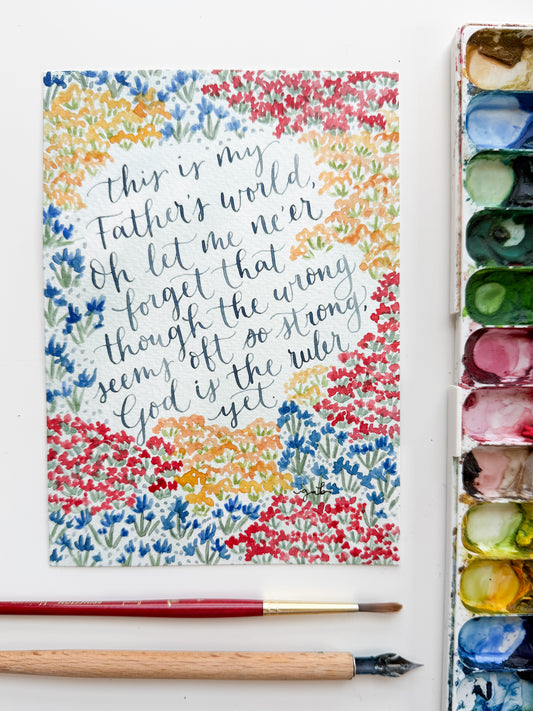 this is my
Father's world,
Oh let me ne'er
forget that
though the wrong
seems oft so strong,
God is the ruler
yet.